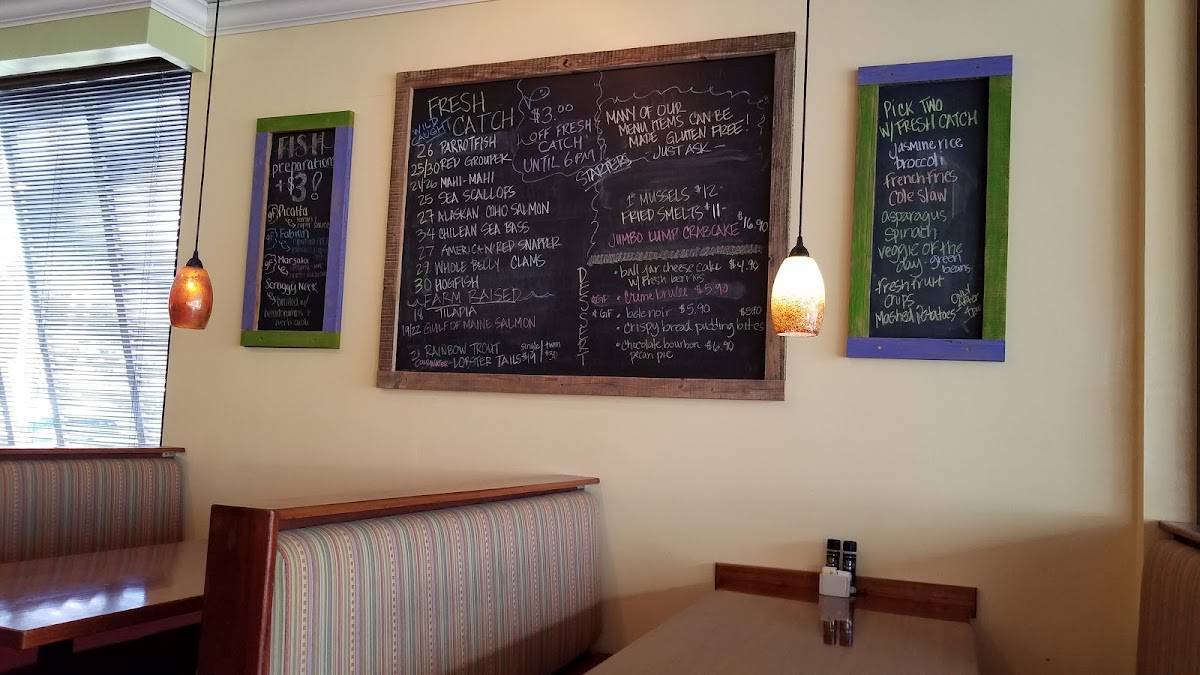 FISH
preparations
+ $3!
Picatta
Scraggy Neck
FRESH
CATCH
WILD
CAUGHT
26 PARROTFISH
25/30 REV GROUPER
24/26 MAHI-MAHI
25 SEA SCALLOPS
27 ALASKAN COHO SALMON
34 CHILEAN SEA BASS
27 AMERICAN RED SNAPPER
29 WHOLE BELLY CLAMS
30 HOGFISH
FARM RAISED
19 TILAPIA
19/22 GULF OF MAINE SALMON
21 RAINBOW TROUT
single/twin
COLDWATER LOBSTER TAILS $19/$30
$3.00
OFF FRESH
CATCH
UNTIL 6 PM
MANY OF OUR
MENU ITEMS CAN BE
MADE GLUTEN FREE!
- JUST ASK -
STARTERS
1# MUSSELS $12-
FRIED SMELTS $11-
JUMBO LUMP CRABCAKE $16.90
DESSERT
• ball jar cheese cake $4.90
w/ fresh berries
GF • Creme brulee $5.90
GF • bete noir $5.90
• Crispy bread pudding bites
• Chocolate bourbon $6.90
pecan pie
PICK TWO
W/ FRESH CATCH
Jasmine rice
broccoli
french fries
Cole Slaw
asparagus
spinach
veggie of the
day - green
beans
fresh fruit
Chips
Mashed Potatoes